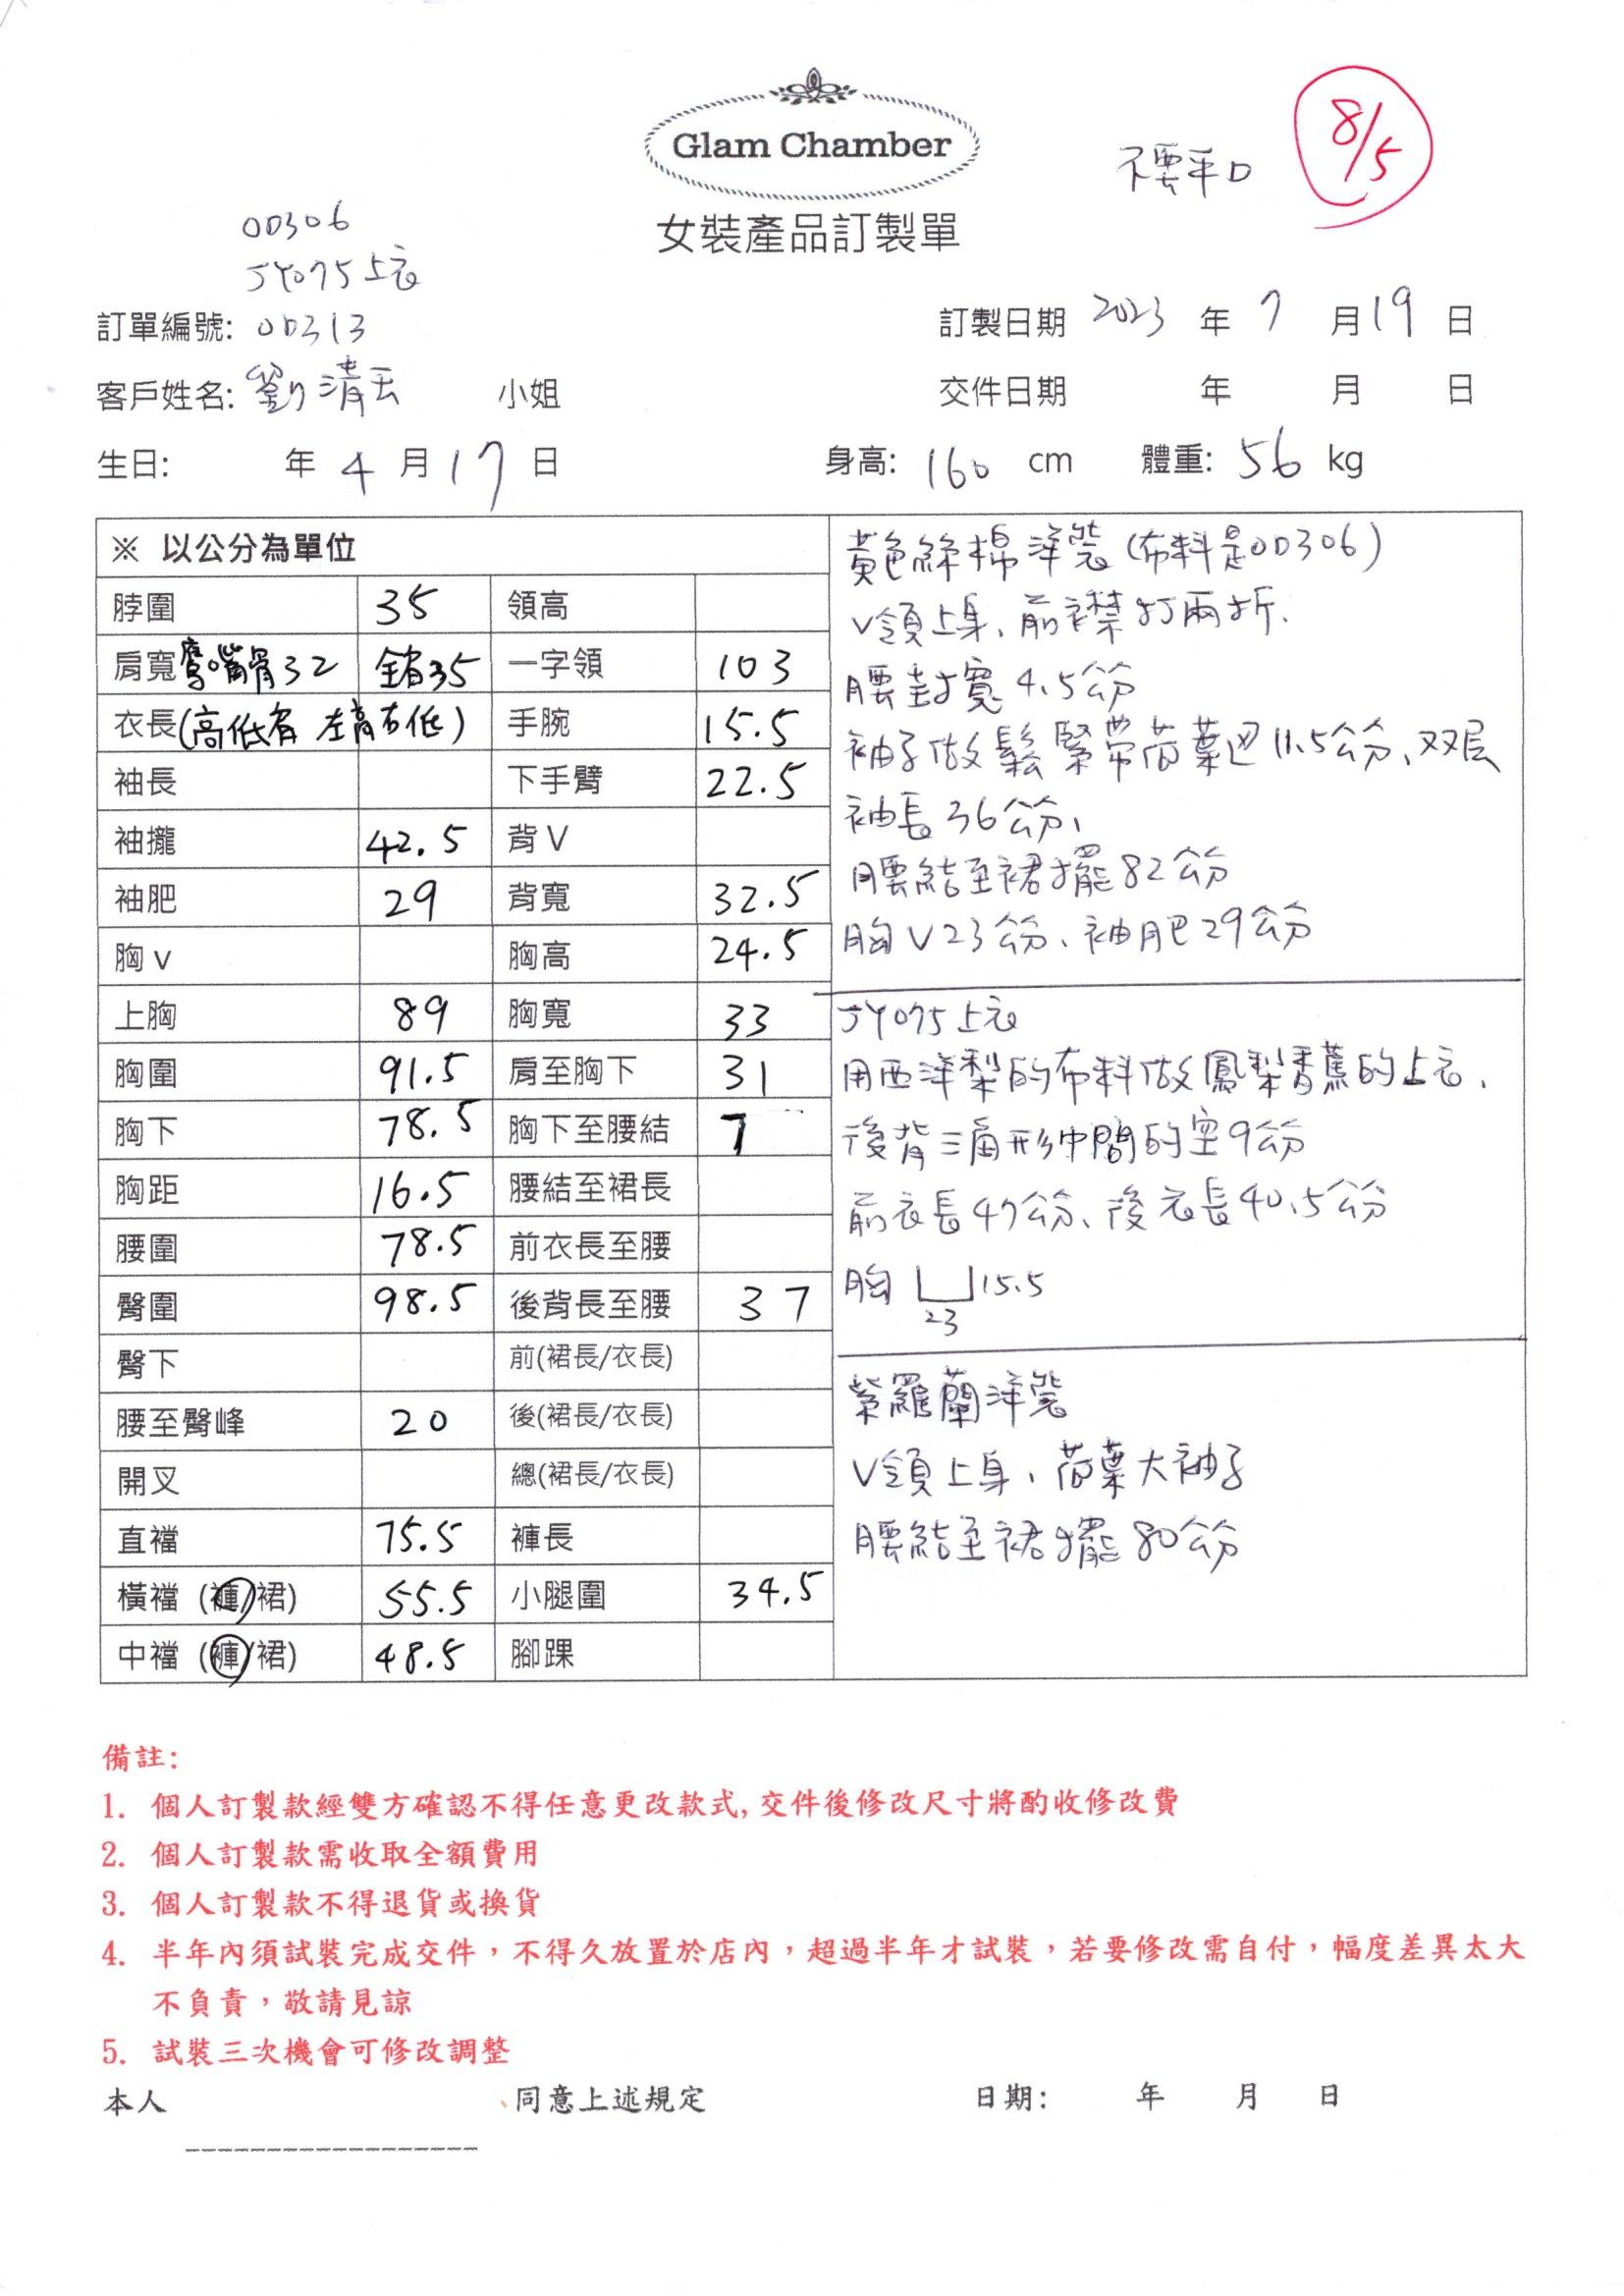 Glam Chamber
不要平口
8/5
女裝產品訂製單
OD306
JY075上衣
訂單編號: OD313
訂製日期 2023 年 7 月 19 日
客戶姓名: 劉清云 小姐
交件日期 年 月 日
生日: 年 4 月 17 日
身高: 160 cm 體重: 56 kg
※ 以公分為單位
脖圍 35 領高
肩寬 鷹嘴骨32 全肩35 一字領 103
衣長(高低肩 左高右低) 手腕 15.5
袖長 下手臂 22.5
袖攏 42.5 背V
袖肥 29 背寬 32.5
胸v 胸高 24.5
上胸 89 胸寬 33
胸圍 91.5 肩至胸下 31
胸下 78.5 胸下至腰結 7
胸距 16.5 腰結至裙長
腰圍 78.5 前衣長至腰
臀圍 98.5 後背長至腰 37
臀下 前(裙長/衣長)
腰至臀峰 20 後(裙長/衣長)
開叉 總(裙長/衣長)
直襠 75.5 褲長
橫襠 (褲/裙) 55.5 小腿圍 34.5
中襠 (褲/裙) 48.5 腳踝
黃色絲棉洋裝(布料是OD306)
V領上身、前襟打兩折.
腰封寬4.5公分
袖子做鬆緊帶荷葉边11.5公分、双层
袖長36公分、
腰結至裙擺82公分
胸V23公分、袖肥29公分
JY075上衣
用西洋梨的布料做鳳梨香蕉的上衣、
後背三角形中間的空9公分
前衣長47公分、後衣長40.5公分
胸 15.5
23
紫羅蘭洋裝
V領上身、荷葉大袖子
腰結至裙擺80公分
備註:
1. 個人訂製款經雙方確認不得任意更改款式, 交件後修改尺寸將酌收修改費
2. 個人訂製款需收取全額費用
3. 個人訂製款不得退貨或換貨
4. 半年內須試裝完成交件，不得久放置於店內，超過半年才試裝，若要修改需自付，幅度差異太大
不負責，敬請見諒
5. 試裝三次機會可修改調整
本人 、同意上述規定 日期: 年 月 日